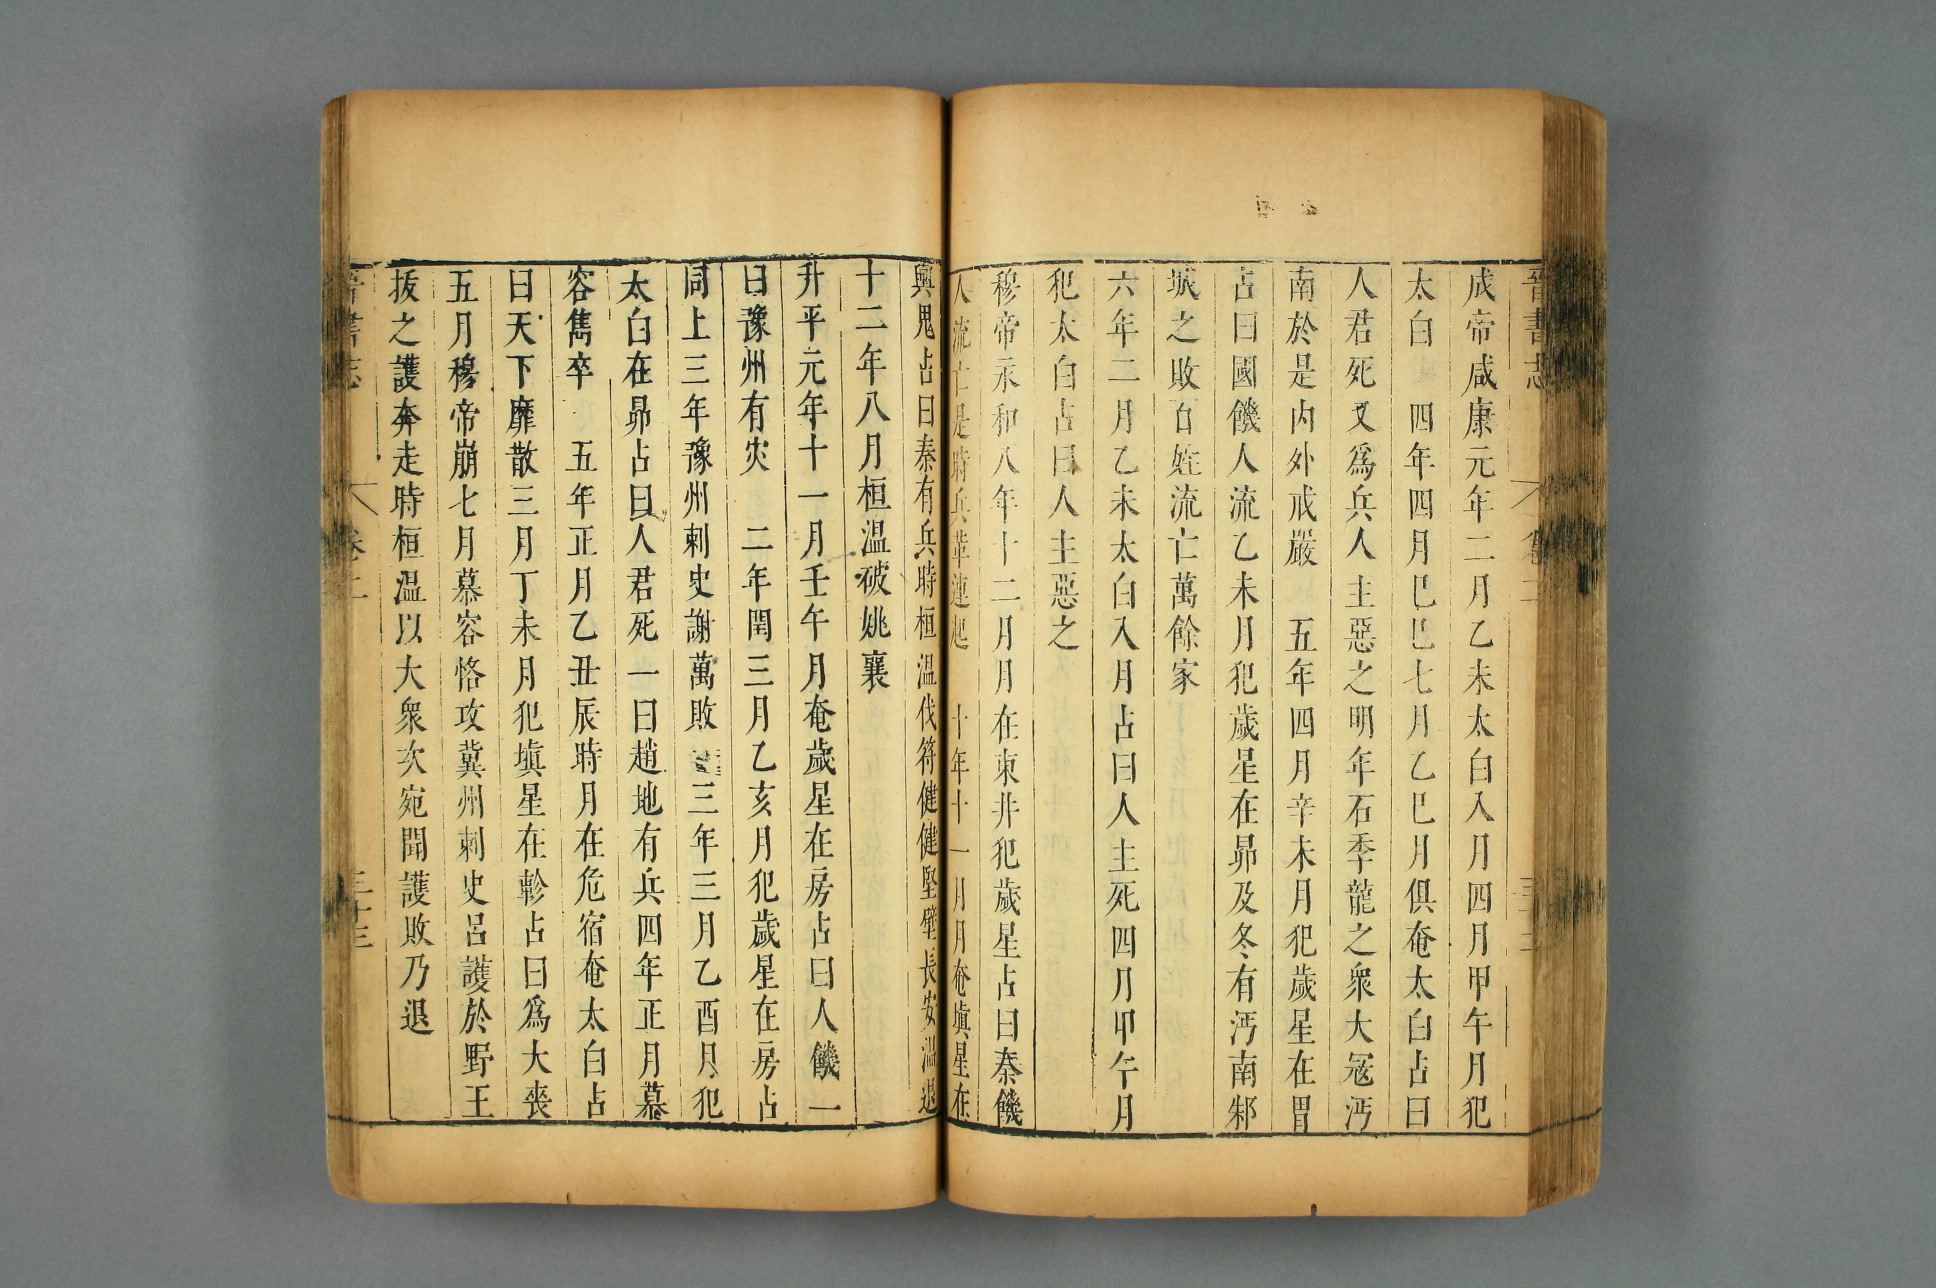 晉書志
卷十二
三十二
成帝咸康元年二月乙未太白入月四月甲午月犯
太白　四年四月己巳七月乙巳月俱奄太白占曰
人君死又爲兵人主惡之明年石季龍之衆大寇沔
南於是内外戒嚴　五年四月辛未月犯歲星在胃
占曰國饑人流乙未月犯歲星在昴及冬有沔南邾
城之敗百姓流亡萬餘家
六年二月乙未太白入月占曰人主死四月甲午月
犯太白占曰人主惡之
穆帝永和八年十二月月在東井犯歲星占曰秦饑
人流亡是時兵革連起　十年十一月月奄塡星在
輿鬼占曰秦有兵時桓温伐符健健堅壁長安温退
十二年八月桓温破姚襄
升平元年十一月壬午月奄歲星在房占曰人饑一
曰豫州有災　二年閏三月乙亥月犯歲星在房占
同上三年豫州刺史謝萬敗　三年三月乙酉月犯
太白在昴占曰人君死一曰趙地有兵四年正月慕
容雋卒　五年正月乙丑辰時月在危宿奄太白占
曰天下靡散三月丁未月犯塡星在軫占曰爲大喪
五月穆帝崩七月慕容恪攻冀州刺史呂護於野王
拔之護奔走時桓温以大衆次宛聞護敗乃退
晉書志
卷十二
三十三